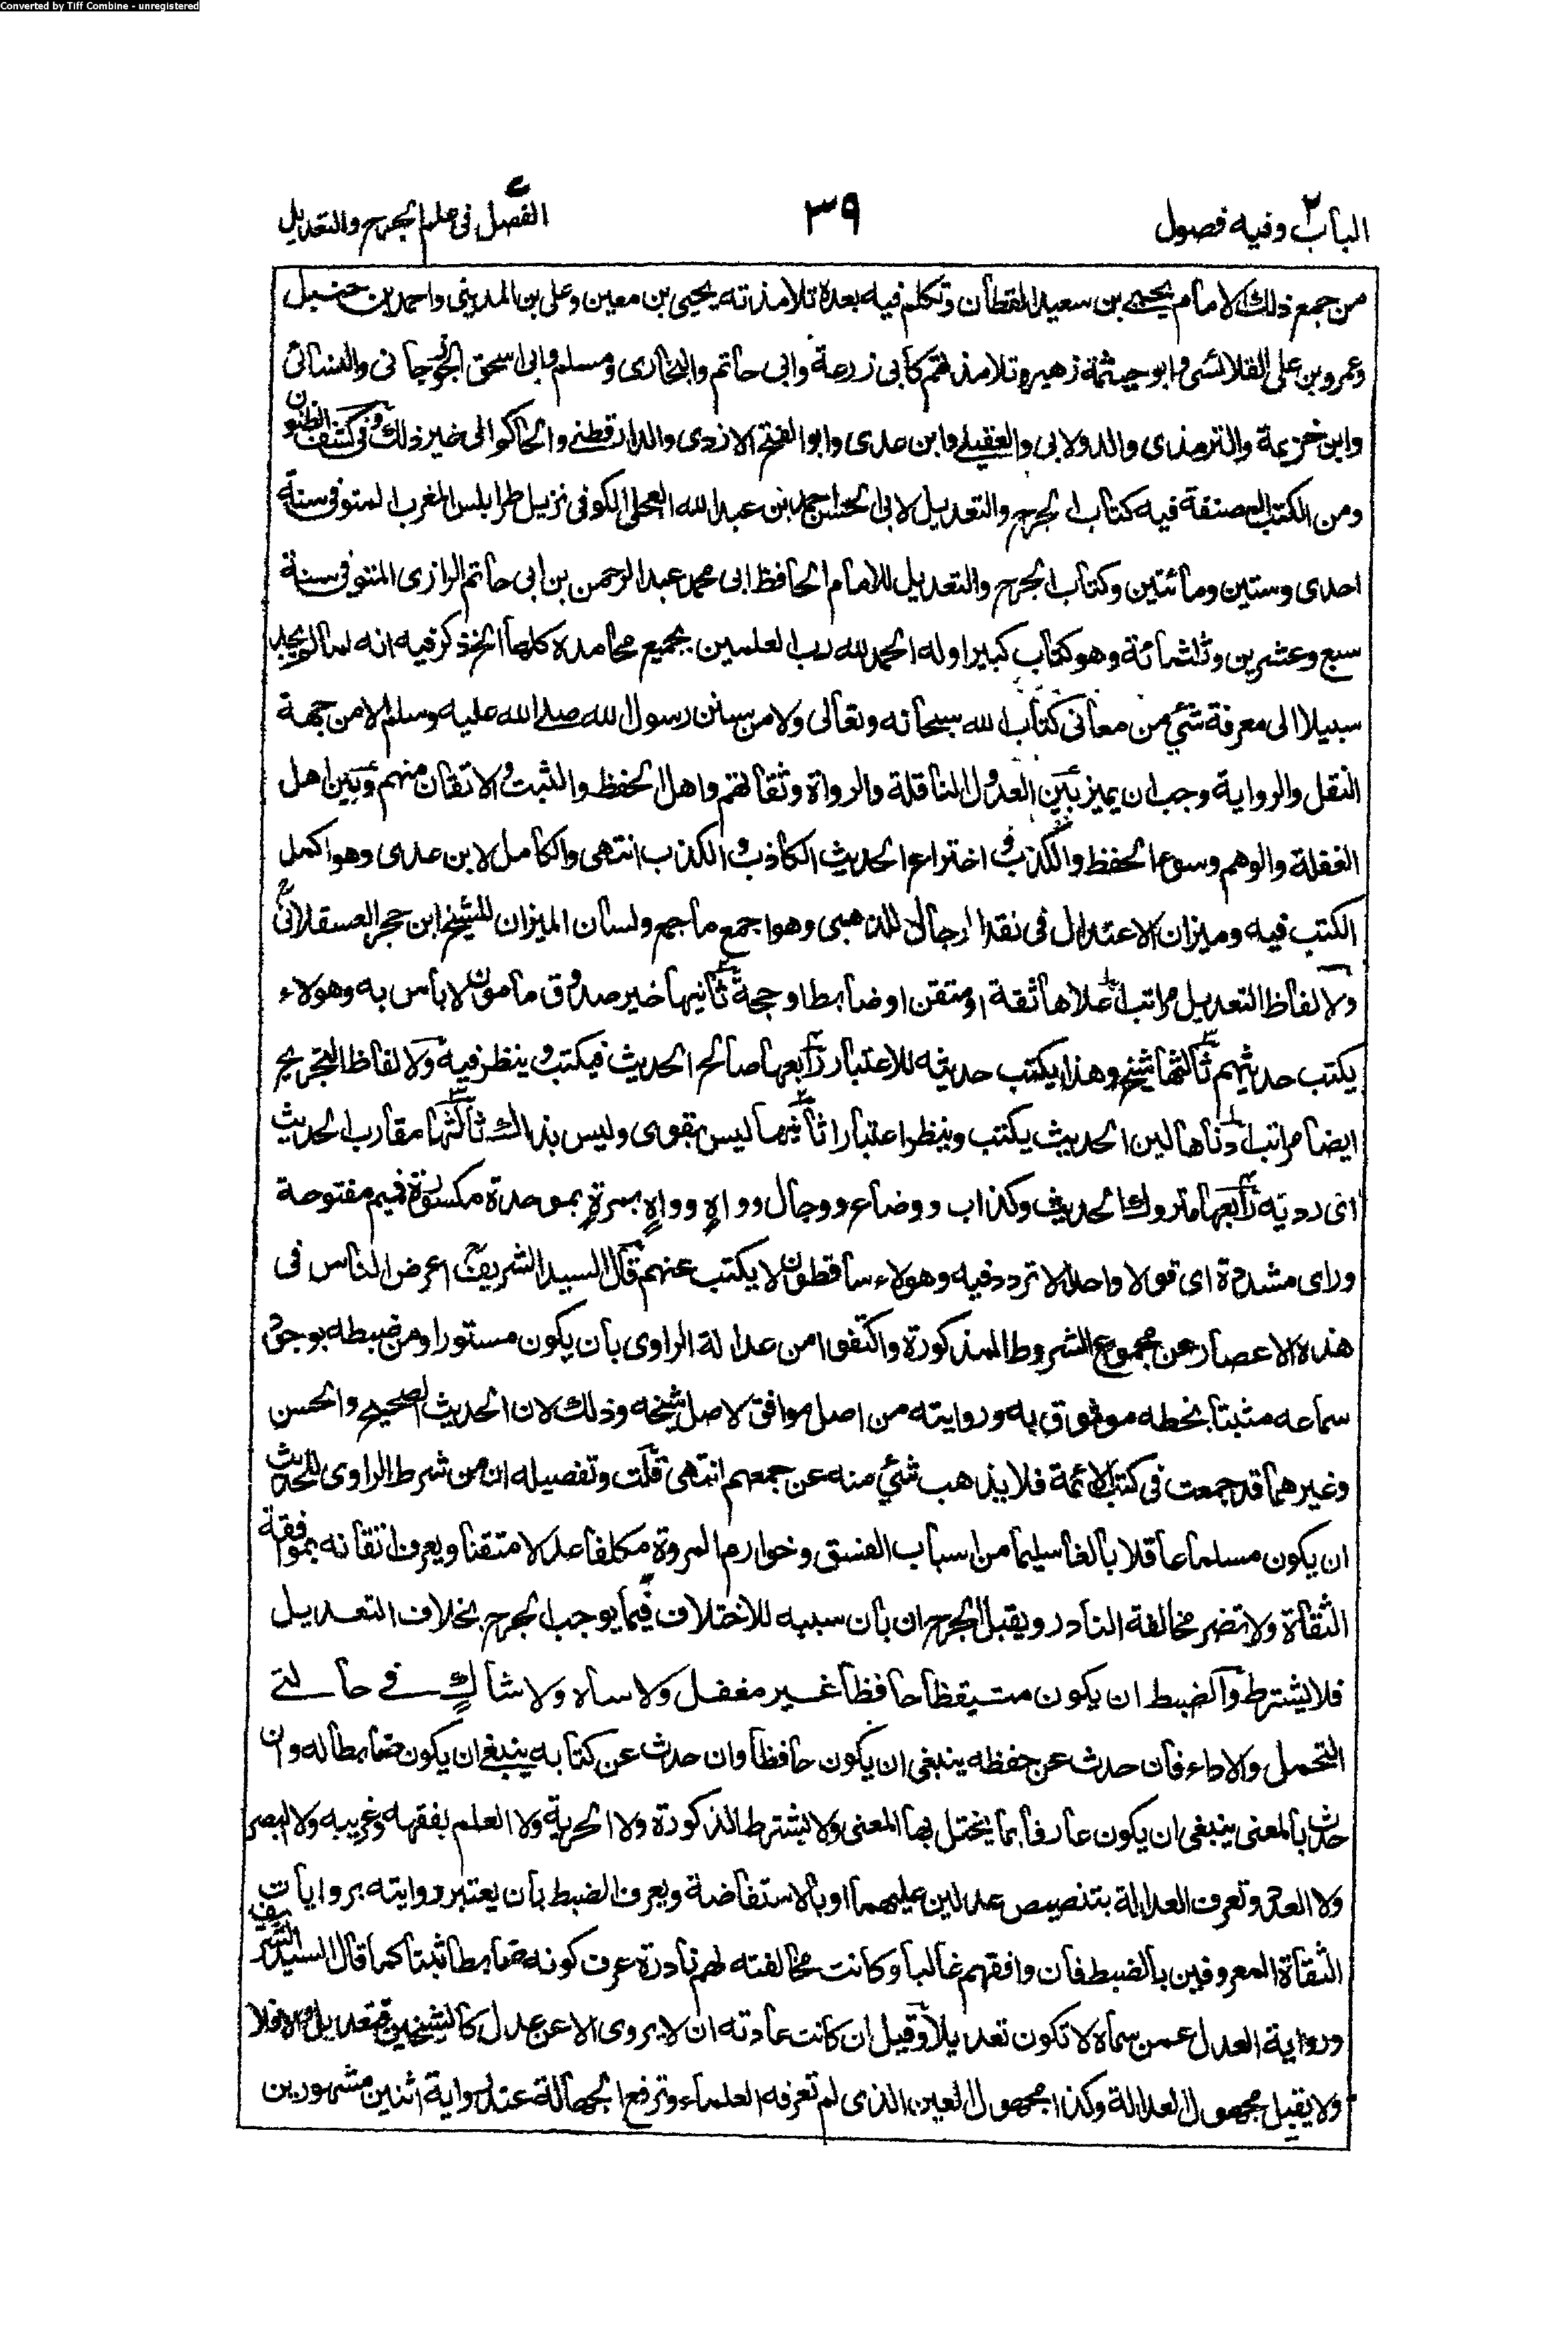 Converted by Tiff Combine - unregistered
الباب ٢ وفيه فصول
٣٩
الفصل ٤ فى علم الجرح والتعديل
من جمع ذلك الامام يحيى بن سعيد القطان وتكلم فيه بعده تلامذته يحيى بن معين وعلى بن المدينى واحمد بن حنبل
وعمرو بن على الفلاس وابو خيثمة زهير وتلامذتهم كابى زرعة وابى حاتم والبخارى ومسلم وابى اسحق الجوزجانى والنسائى
وابن خزيمة والترمذى والدولابى والعقيلى وابن عدى وابو الفتح الازدى والدارقطنى والحاكم الى غير ذلك وفى كشف الظنون
ومن الكتب المصنفة فيه كتاب الجرح والتعديل لابى الحسن احمد بن عبد الله العجلى الكوفى نزيل طرابلس المغرب المتوفى سنة
احدى وستين ومائتين وكتاب الجرح والتعديل للامام الحافظ ابى محمد عبد الرحمن بن ابى حاتم الرازى المتوفى سنة
سبع وعشرين وثلثمائة وهو كتاب كبير اوله الحمد لله رب العلمين بجميع محامده كلها الخ ذكر فيه انه لما لم يجد
سبيلا الى معرفة شئ من معانى كتاب الله سبحانه وتعالى ولا من سنن رسول الله صلى الله عليه وسلم الا من جهة
النقل والرواية وجب ان يميز بين العدول الناقلة والرواة وثقاتهم واهل الحفظ والثبت والاتقان منهم وبين اهل
الغفلة والوهم وسوء الحفظ والكذب واختراع الحديث الكاذب والكذب انتهى والكامل لابن عدى وهو اكمل
الكتب فيه وميزان الاعتدال فى نقد الرجال للذهبى وهو اجمع ما جمع ولسان الميزان للشيخ ابن حجر العسقلانى رح
ولالفاظ التعديل مراتب اعلاها ثقة او متقن او ضابط او حجة ثانيها خير صدوق مامون لا باس به وهولاء
يكتب حديثهم ثالثها شيخ وهذا يكتب حديثه للاعتبار رابعها صالح الحديث فيكتب وينظر فيه ولالفاظ التجريح
ايضا مراتب ادناها لين الحديث يكتب وينظر اعتبارا ثانيها ليس بقوى وليس بذالك ثالثها مقارب الحديث
اى رديه رابعها متروك الحديث وكذاب ووضاع ودجال وواه وواه بمرة بموحدة مكسورة فميم مفتوحة
وراى مشددة اى قولا واحدا لا تردد فيه وهولاء ساقطون لا يكتب عنهم قال السيد الشريف رح اعرض الناس فى
هذه الاعصار عن مجموع الشروط المذكورة واكتفوا من عدالة الراوى بان يكون مستورا ومن ضبطه بوجود
سماعه مثبتا بخطه موثوق به وروايته من اصل موافق لاصل شيخه وذلك لان الحديث الصحيح والحسن
وغيرهما قد جمعت فى كتب الائمة فلا يذهب شئ منه عن جمعهم انتهى قلت وتفصيله ان من شرط الراوى للحديث
ان يكون مسلما عاقلا بالغا سليما من اسباب الفسق وخوارم المروة مكلفا عدلا متقنا ويعرف اتقانه بموافقة
الثقاة ولا تضر مخالفة النادر ويقبل الجرح ان بان سببه للاختلاف فيما يوجب الجرح بخلاف التعديل
فلا يشترط والضبط ان يكون متيقظا حافظا غير مغفل ولا ساه ولا شاك فى حالتى
التحمل والاداء فان حدث عن حفظه ينبغى ان يكون حافظا وان حدث عن كتابه ينبغى ان يكون ضابطا له وان
حدث بالمعنى ينبغى ان يكون عارفا بما يختل بها المعنى ولا يشترط الذكورة ولا الحرية ولا العلم بفقهه وغريبه ولا البصر
ولا العدد وتعرف العدالة بتنصيص عدلين عليهما او بالاستفاضة ويعرف الضبط بان يعتبر روايته بروايات
الثقاة المعروفين بالضبط فان وافقهم غالبا وكانت مخالفته لهم نادرة عرف كونه ضابطا ثبتا كما قال السيد الشريف
ورواية العدل عمن سماه لا تكون تعديلا وقيل ان كانت عادته ان لا يروى الا عن عدل كالشيخين فتعديل والا فلا
ولا يقبل مجهول العدالة وكذا مجهول العين الذى لم تعرفه العلماء وترفع الجهالة عنه رواية اثنين مشهورين